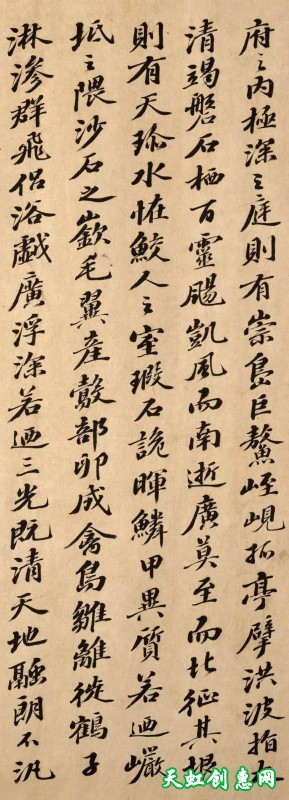 府之內極深之庭則有崇島巨鼇峌峴孤亭擘洪波指太
清竭磐石栖百靈颺凱風而南逝廣莫至而北征其垠
則有天琛水怪鮫人之室瑕石詭暉鱗甲異質若迺巖
坻之隈沙石之嶔毛翼產鷇部卵成禽鳧雛離褷鶴子
淋滲群飛侶浴戲廣浮深若迺三光既清天地融朗不汎
天虹创意网